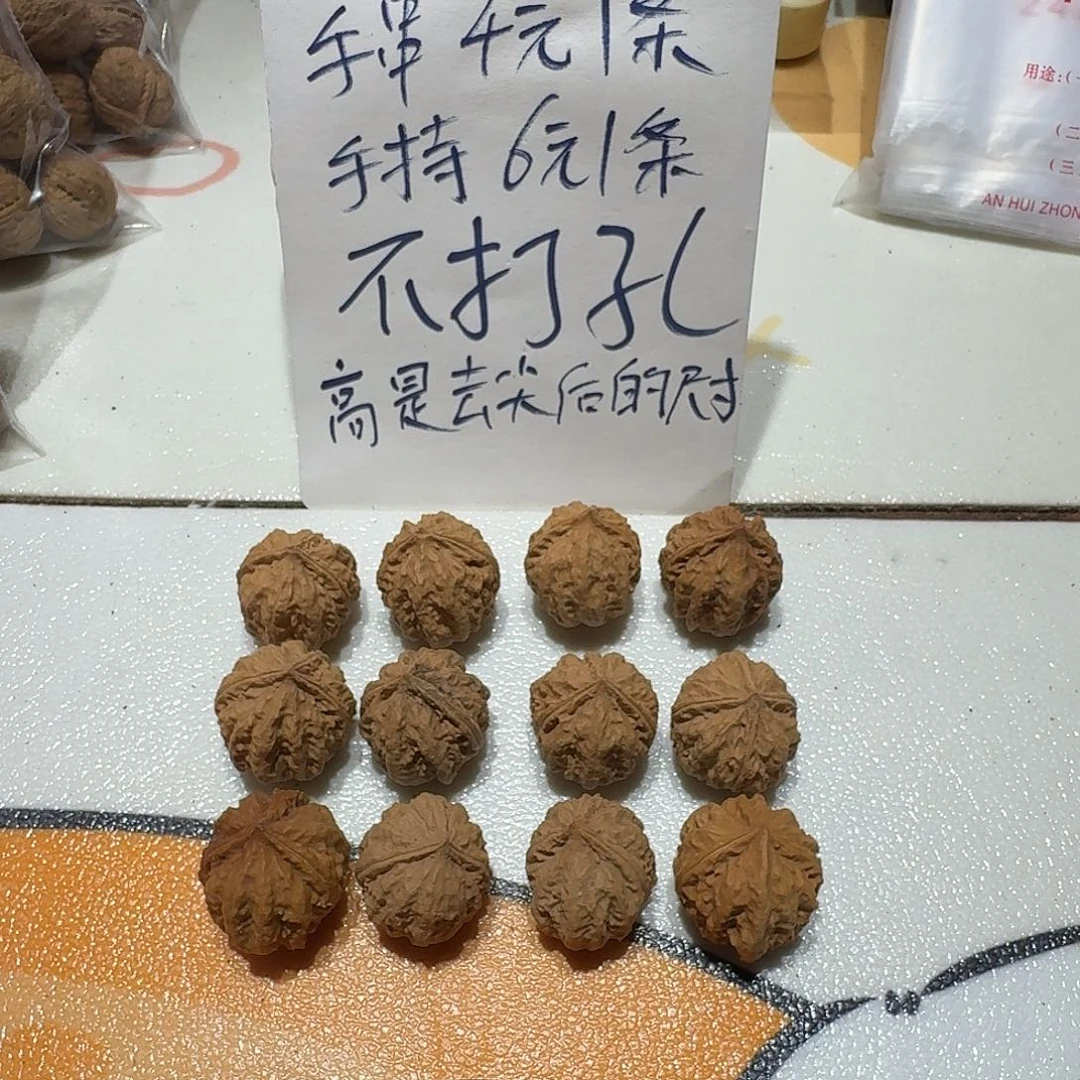 手串 4元1条
手持 6元1条
不打孔
高是去尖后的尺寸
用途:(一
(二
(三
AN HUI ZHON